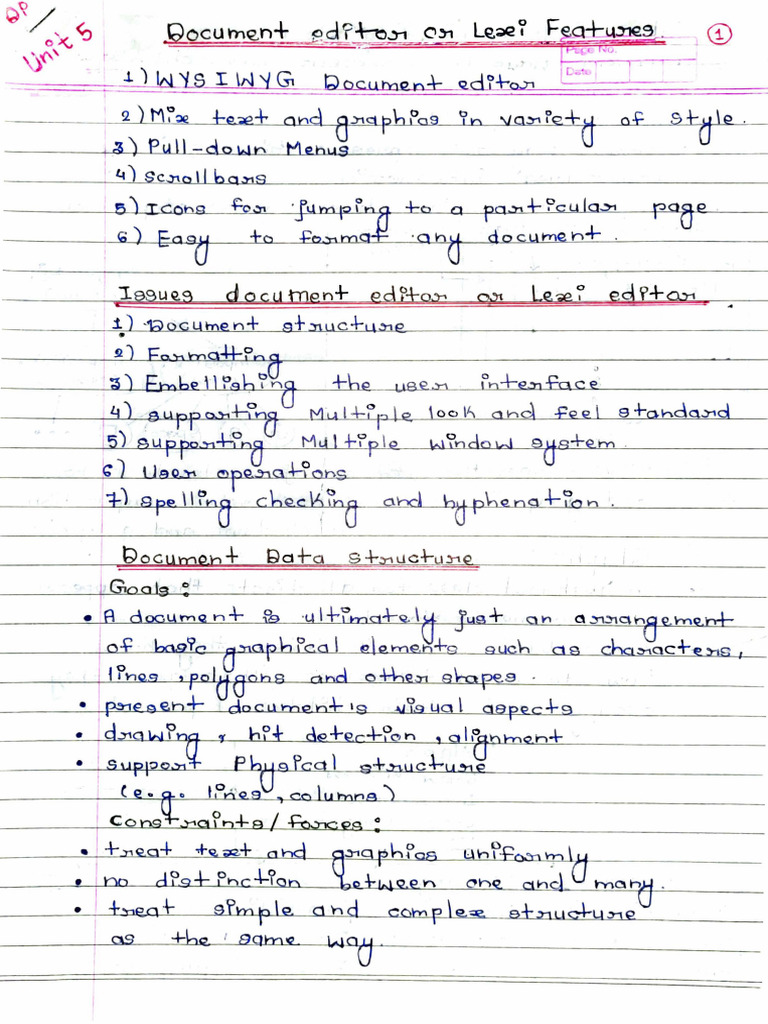 DP/
Unit 5
Document editor or Lexi Features.
1
Page No.
Date
1) WYSIWYG Document editor
2) Mix text and graphics in variety of style.
3) Pull-down Menus
4) scrollbars
5) Icons for jumping to a particular page
6) Easy to format any document.
Issues document editor or Lexi editor
1) Document structure
2) Formatting
3) Embellishing the user interface
4) supporting Multiple look and feel standard
5) supporting Multiple window system.
6) User operations
7) spelling checking and hyphenation.
Document Data structure
Goals:
• A document is ultimately just an arrangement
of basic graphical elements such as characters,
lines, polygons and other shapes.
• present document's visual aspects
• drawing, hit detection, alignment
• support Physical structure
(e.g. lines, columns)
constraints/forces:
• treat text and graphics uniformly
• no distinction between one and many.
• treat simple and complex structure
as the same way.